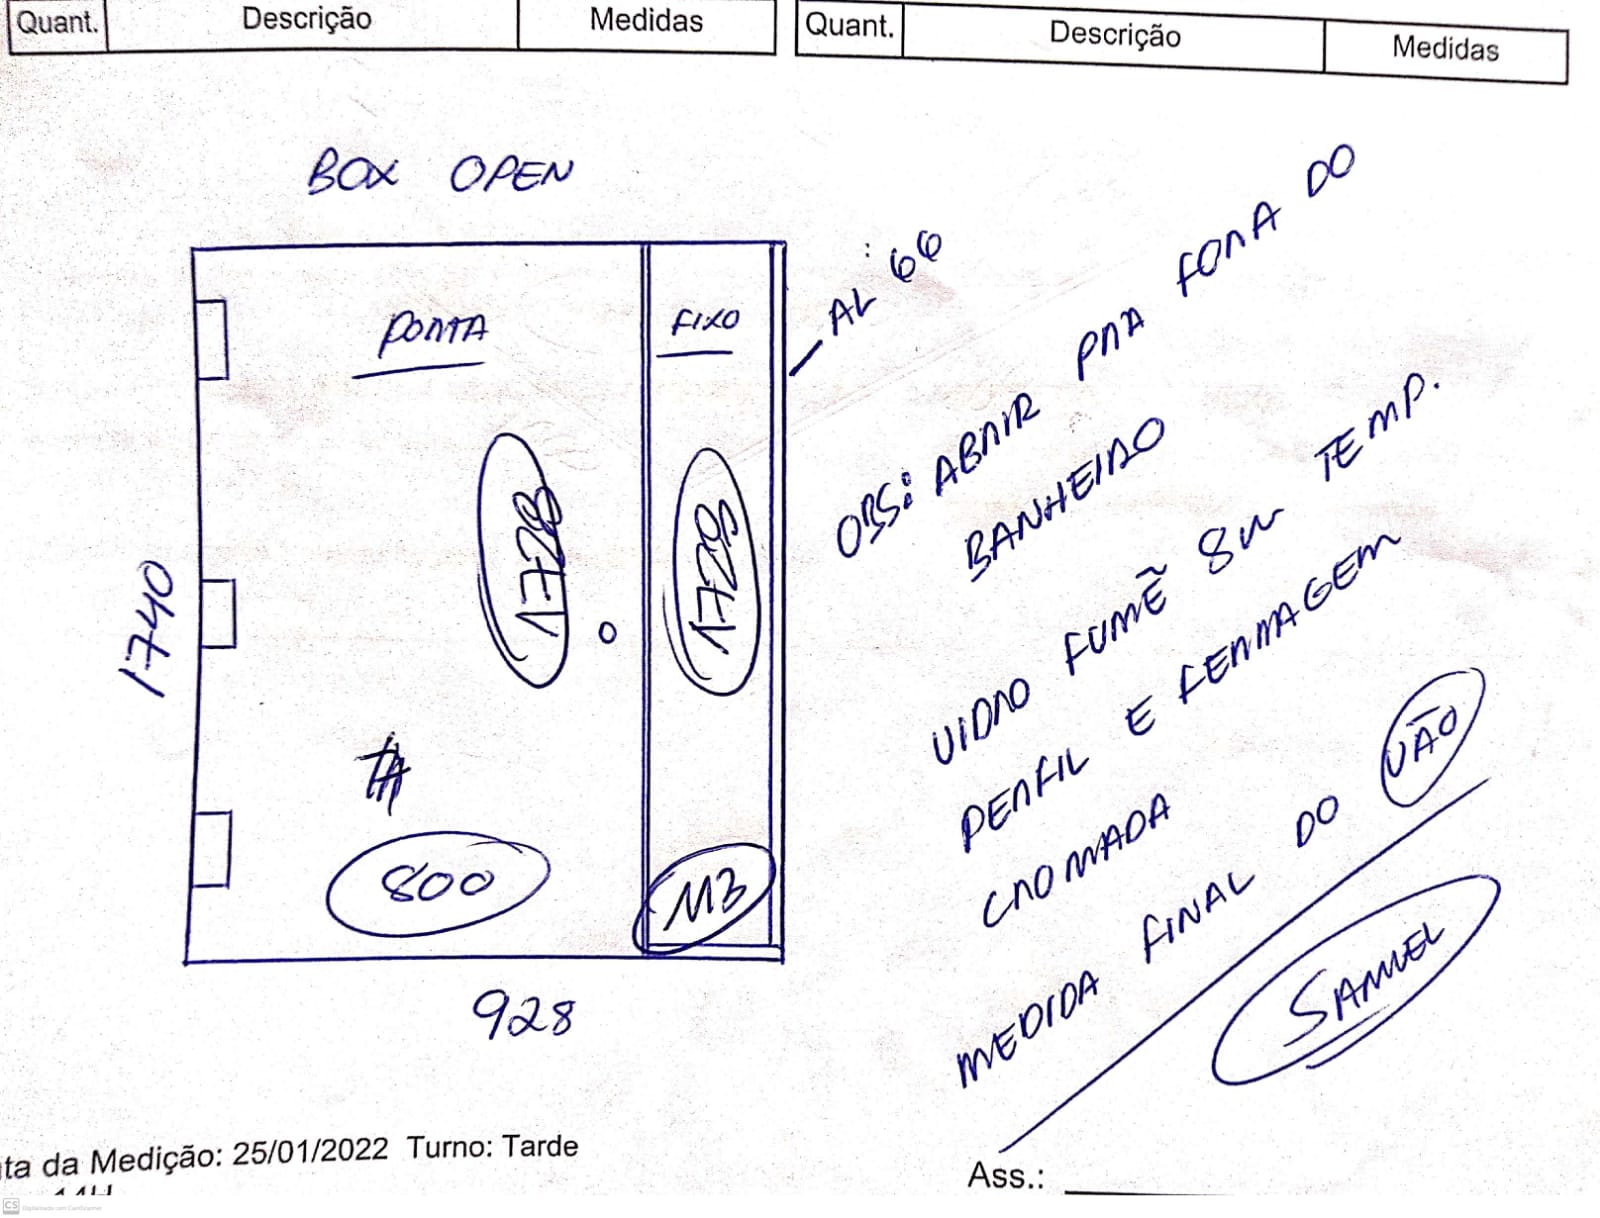 Quant. Descrição Medidas
Quant. Descrição Medidas
BOX OPEN
PORTA
FIXO
AL: 66
1728
1728
1740
800
113
928
OBS: ABRIR PRA FORA DO
BANHEIRO
VIDRO FUMÊ 8m TEMP.
PERFIL E FERRAGEM
CROMADA
MEDIDA FINAL DO VÃO
SAMUEL
ta da Medição: 25/01/2022 Turno: Tarde
Ass.:
CS Digitalizado com CamScanner